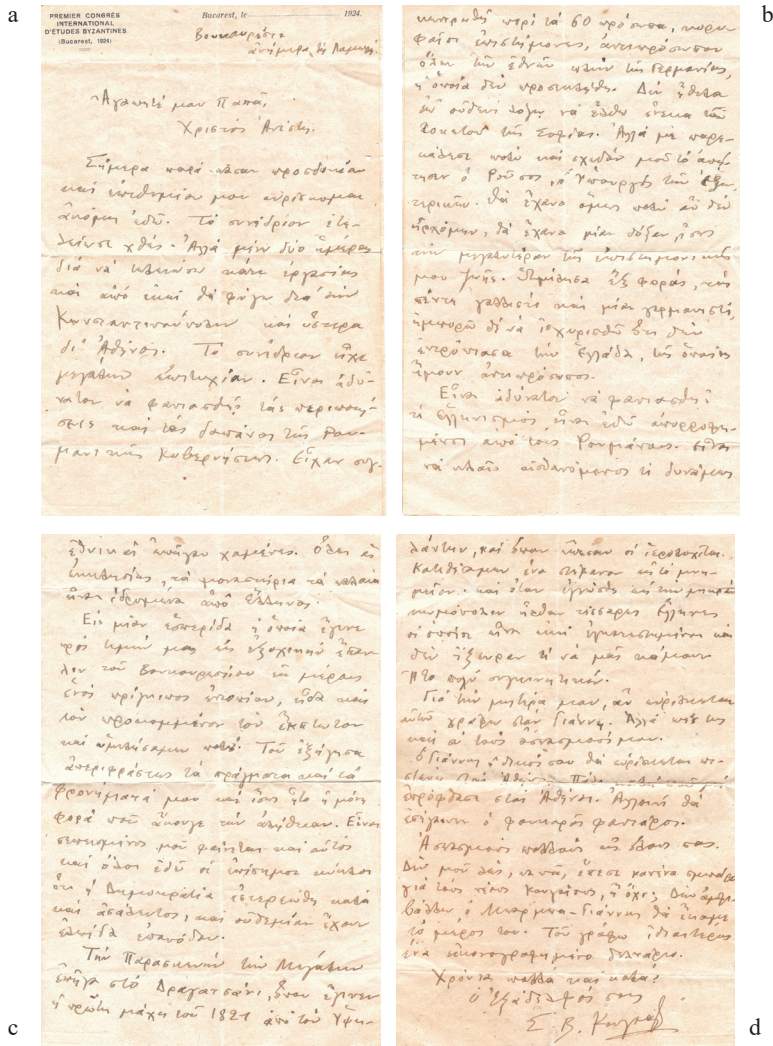 PREMIER CONGRÈS
INTERNATIONAL
D'ÉTUDES BYZANTINES
(Bucarest, 1924)
Bucarest, le 1924.
Βουκουρέστι
ἀνήμερα τῆς Λαμπρῆς
Ἀγαπητέ μου Παπᾶ,
Χριστὸς Ἀνέστη.
Σήμερα παρὰ πᾶσαν προσδοκίαν
καὶ ἐπιθυμίαν μου εὑρίσκομαι
ἀκόμη ἐδῶ. Τὸ συνέδριον ἐτε-
λείωσε χθές. Ἀλλὰ μένω δύο ἡμέρας
διὰ νὰ τελειώσω κάτι ἐργασίας
καὶ ἀπὸ ἐκεῖ θὰ φύγω διὰ τὴν
Κωνσταντινούπολιν καὶ ὕστερα
δι' Ἀθήνας. Τὸ συνέδριον εἶχε
μεγάλην ἐπιτυχίαν. Εἶναι ἀδύ-
νατον νὰ φαντασθῇς τὰς περιποιή-
σεις καὶ τὰς δαπάνας τῆς Ρου-
μανικῆς Κυβερνήσεως. Εἶχαν συγ-
a
κεντρωθῆ περὶ τὰ 60 πρόσωπα, κορυ-
φαῖοι ἐπιστήμονες, ἀντιπρόσωποι
ὅλων τῶν ἐθνῶν πλὴν τῆς Γερμανίας,
ἡ ὁποία δὲν προσεκλήθη. Δὲν ἤθελα
ἐν οὐδενὶ λόγῳ νὰ ἔλθω ἕνεκα τοῦ
τοκετοῦ τῆς Σοφίας. Ἀλλὰ μὲ παρε-
κάλεσε πολὺ καὶ σχεδὸν μοῦ τὸ ἀπῄ-
τησεν ὁ Ροῦσος, ὁ Ὑπουργὸς τῶν Ἐξω-
τερικῶν. Θὰ ἔχανα ὅμως πολὺ ἂν δὲν
ἠρχόμην, θὰ ἔχανα μίαν δόξαν, ἴσως
τὴν μεγαλυτέραν τῆς ἐπιστημονικῆς
μου ζωῆς. Ὡμίλησα ἓξ φοράς, τὰς
πέντε γαλλιστὶ καὶ μίαν γερμανιστί,
ἠμπορῶ δὲ νὰ ἰσχυρισθῶ ὅτι δὲν
ἐντρόπιασα τὴν Ἑλλάδα, τῆς ὁποίας
ἤμουν ἀντιπρόσωπος.
Εἶναι ἀδύνατον νὰ φαντασθῇς
τί Ἑλληνισμὸς εἶναι ἐδῶ ἀπορροφη-
μένος ἀπὸ τοὺς Ρουμάνους. Εἶναι
νὰ κλαῖς αἰσθανόμενος τί δυνάμεις
b
ἐθνικαὶ ἐπῆγαν χαμένες. Ὅλες αἱ
ἐκκλησίες, τὰ μοναστήρια τὰ παλαιὰ
εἶναι ἱδρυμένα ἀπὸ Ἕλληνας.
Εἰς μίαν ἑσπερίδα ἡ ὁποία ἔγινε
πρὸς τιμήν μας εἰς ἐξοχικὴν ἔπαυ-
λιν τοῦ Βουκουρεστίου ἐκ μέρους
ἑνὸς πρίγκιπος ἐντοπίου, εἶδα καὶ
τὸν προκομμένον τὸν ἔκπτωτον
καὶ ὡμιλήσαμεν πολύ. Τοῦ ἐξήγησα
ἀπεριφράστως τὰ πράγματα καὶ τὰ
φρονήματά μου καὶ ἴσως ἦτο ἡ μόνη
φορὰ ποὺ ἄκουγε τὴν ἀλήθειαν. Εἶναι
πεπεισμένος μοῦ φαίνεται καὶ αὐτὸς
καὶ ὅλοι ἐδῶ οἱ ἐπίσημοι κύκλοι
ὅτι ἡ Δημοκρατία ἐστερεώθη καλὰ
καὶ ἀσάλευτος, καὶ οὐδεμίαν ἔχουν
ἐλπίδα ἐπανόδου.
Τὴν Παρασκευὴν τὴν Μεγάλην
ἐπῆγα στὸ Δραγατσάνι, ὅπου ἔγινεν
ἡ πρώτη μάχη τοῦ 1821 ἀπὸ τὸν Ὑψη-
c
λάντην, καὶ ὅπου ἔπεσαν οἱ ἱερολοχῖται.
Κατεθέσαμεν ἕνα στέφανον εἰς τὸ μνη-
μεῖον. Καὶ ὅταν ἐγνώσθη εἰς τὴν μικρὰν
κωμόπολιν ἦρθαν τέσσαρες Ἕλληνες
οἱ ὁποῖοι εἶναι ἐκεῖ ἐγκατεστημένοι καὶ
δὲν ἤξευραν τί νὰ μᾶς κάμουν.
Ἦτο πολὺ συγκινητικόν.
Γιὰ τὴν μητέρα μου, ἂν εὑρίσκεται
αὐτοῦ γράφω στὸν Γιάννη. Ἀλλὰ πές της
καὶ σὺ τοὺς ἀσπασμούς μου.
Ὁ Γιάννης ὁ δικός σου θὰ εὑρίσκεται
στὰς Ἀθήνας.
ἐπρόφθασε στὰς Ἀθήνας.
Ἀσπασμοὺς πολλοὺς εἰς ὅλους σας.
Δὲν μοῦ λές, παπᾶ, ἔπεσε κανένα
γιὰ τοὺς νέους Κουγέηδες, ἢ ὄχι; Δὲν ἀμφι-
βάλλω ὁ Μπάρμπα-Γιάννης θὰ ἔκαμε
τὸ μέρος του. Τοῦ γράφω ἰδιαιτέρως
ἕνα εἰκονογραφημένο δελτάριο.
Χρόνια πολλὰ καὶ καλά!
Ὁ ἐξάδελφός σας
Σ. Β. Κουγέας
d